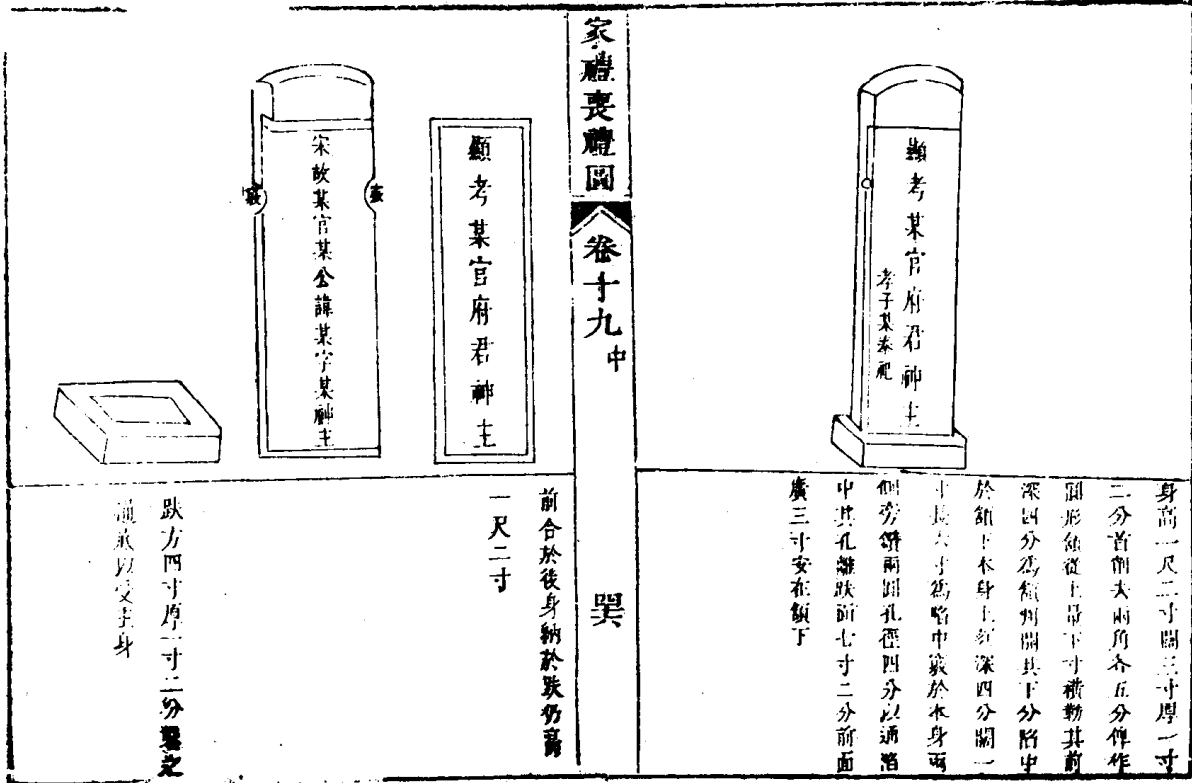 顯考某官府君神主
孝子某奉祀
身高一尺二寸闊三寸厚一寸
二分首削去兩角各五分俾作
圓形額從上量下寸橫勒其前
深四分為額判開其下分陷中
於額下本身上
深四分闊一
寸長六寸為陷中竅於本身兩
側旁鑽兩圓孔徑四分以通陷
中其孔離趺面七寸二分前面
廣三寸安在額下
家禮喪禮圖
卷十九
中
哭
顯考某官府君神主
宋故某官某公諱某字某神主
竅
竅
前合於後身納於趺仍高
一尺二寸
趺方四寸厚一寸二分鑿之
通底以受主身